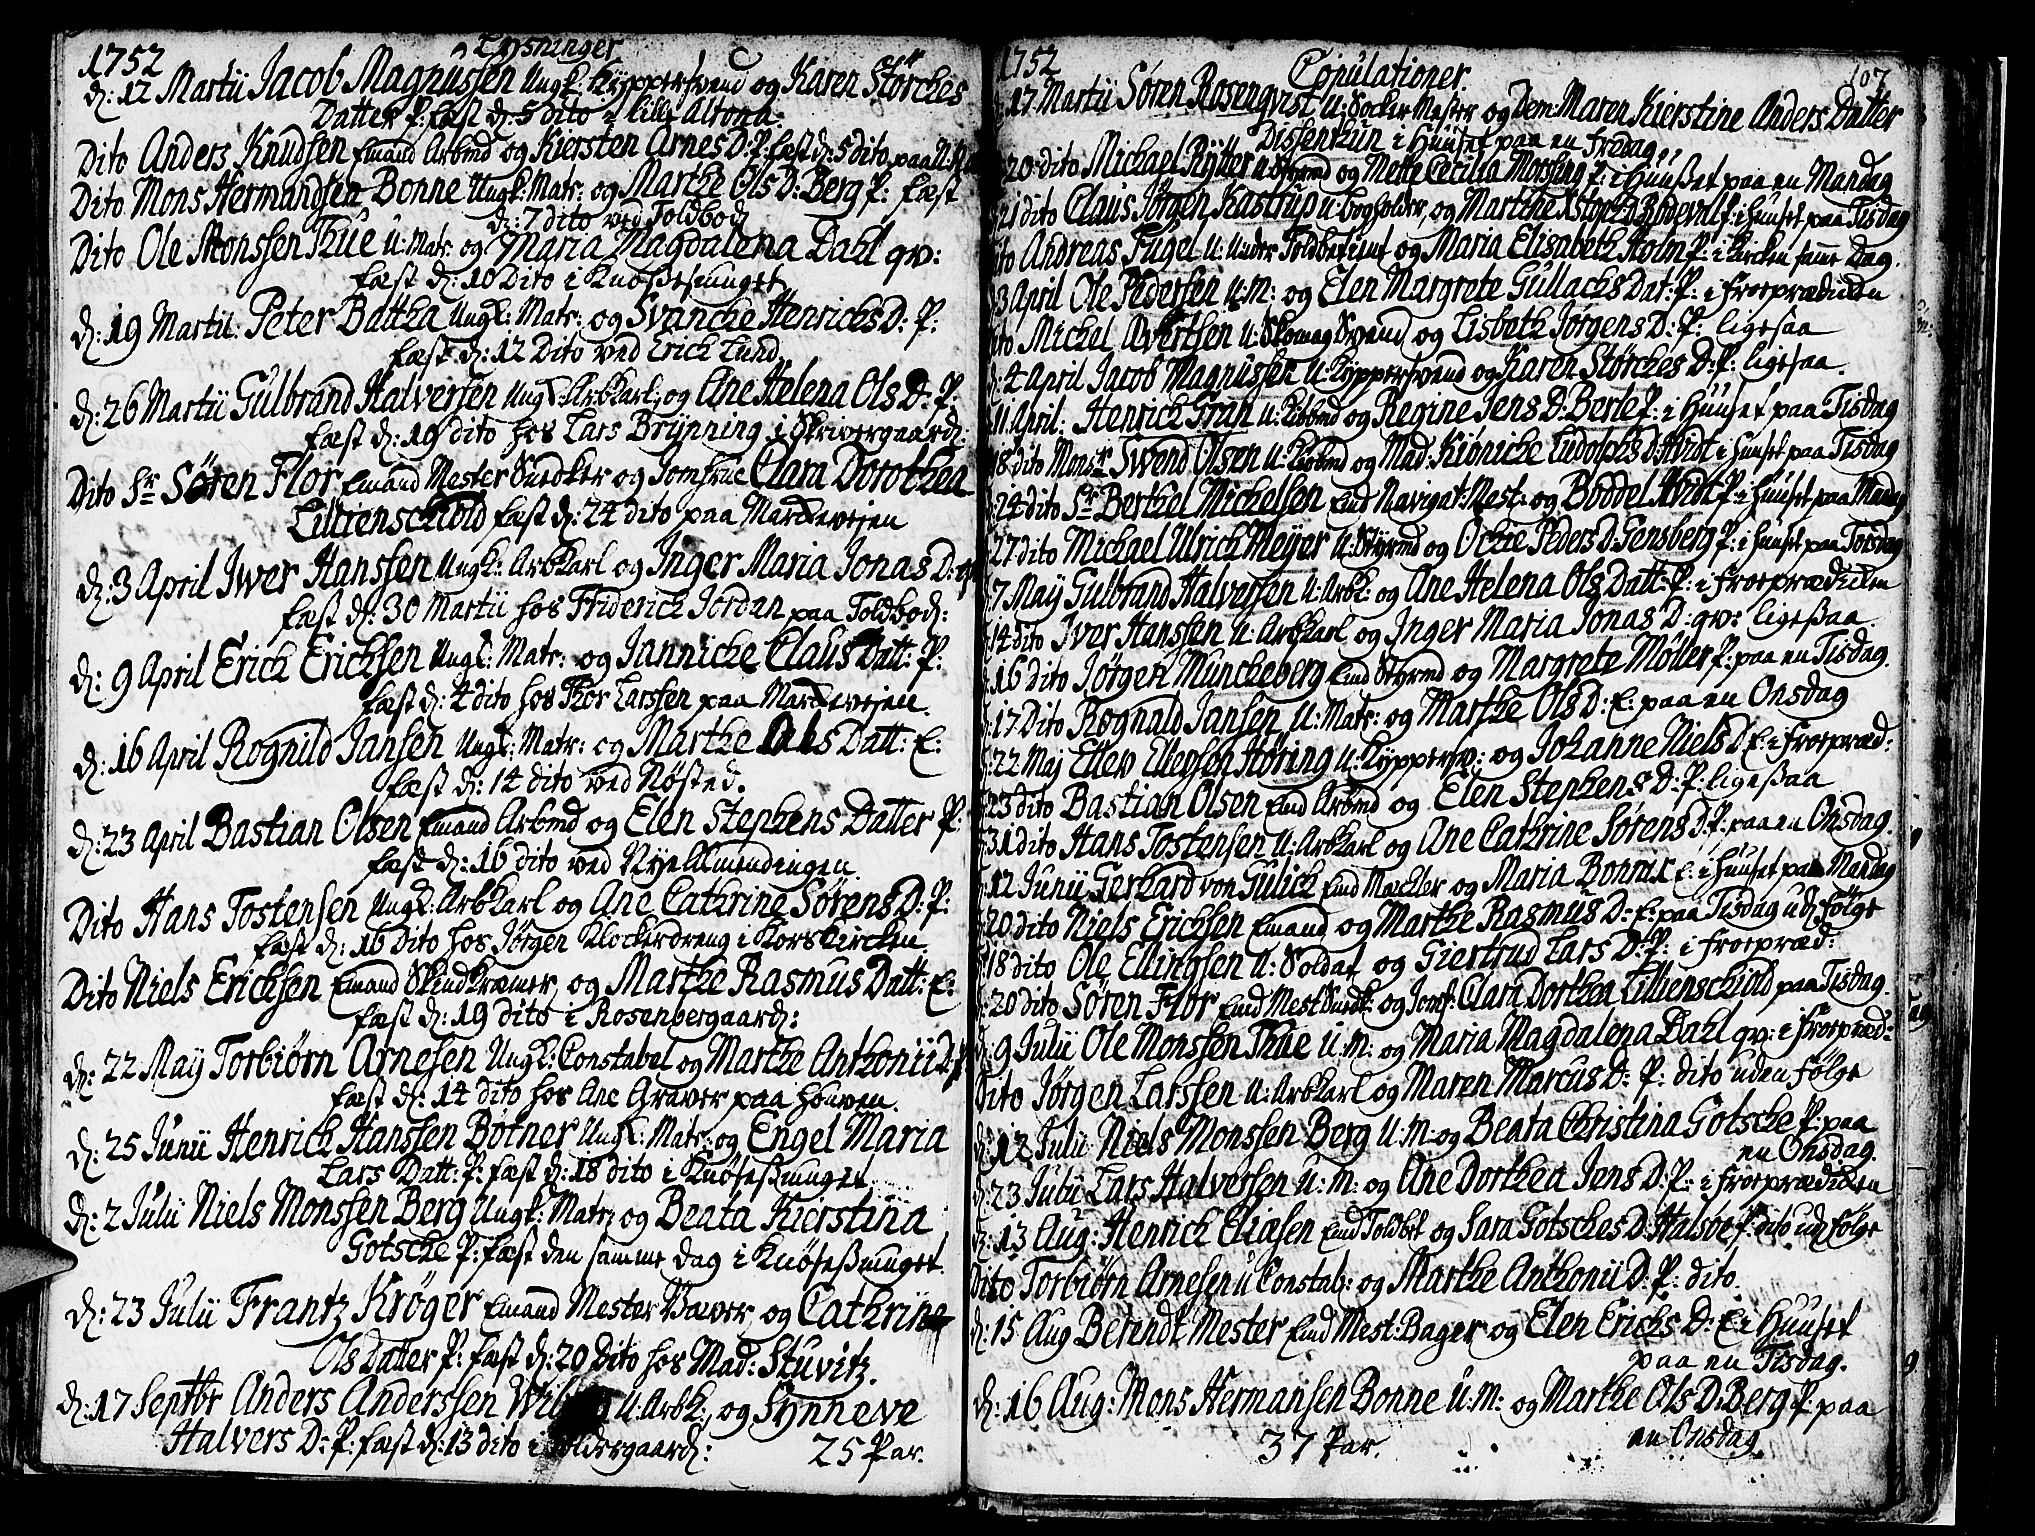 1752 Lysninger
d: 12 Martii Jacob Magnussen Ungk: Kyppersvend og Karen Störches
Datter P: fæst d: 5 dito i lille Altona.
Dito Anders Knudsen Emand Arbmd og Kiersten Arnes D: P: fæst d: 5 dito paa
Dito Mons Hermandsen Bonne Ungk: Mats: og Marthe Ols D: Berg P: fæst
d: 7 dito ved Toldbod
Dito Ole Monssen Thue u: Mats: og Maria Magdalena Dahl qv:
fæst d: 10 Dito i Knösesmuget
d: 19 Martii: Peter Battha Ungk: Mats: og Svancke Henrichs D: P:
fæst d: 12 Dito ved Erich Lund
d: 26 Martii Gulbrand Halversen Ungk: Arbkarl, og Ane Helena Ols D: P:
fæst d: 19 dito hos Lars Brynning i Skrivergaard:
Dito Sr Sören Flor Emand Mester Snedker og Jomfrue Clara Dorothea
Lillienschiold fæst d: 24 dito paa Marckeveien
d: 3 April Iwer Hanssen Ungk: Arbkarl og Inger Maria Jonas D: qv
fæst d: 30 Martii hos Friderich Jordan paa Toldbod:
d: 9 April Erich Erichsen Ungk: Mats: og Jannicke Claus Datt: P:
fæst d: 4 dito hos Thor Larssen paa Marckeveien.
d: 16 April Rognild Jansen Ungk: Mats: og Marthe Ols Datt: E:
fæst d: 14 dito ved Nøsted.
d: 23 April Bastian Olsen Emand Arbmd og Elen Stephens Datter P:
fæst d: 16 dito ved Nye Allmendingen.
Dito Hans Tostensen Ungk: Arbkarl og Ane Cathrine Sørens D: P:
fæst d: 16 Dito hos Jørgen Klockerdreng i Korskircken
Dito Niels Erichsen Emand Skindkræmer, og Marthe Rasmus Datt: E:
fæst d: 19 dito i Rosenbergaard:
d: 22 May Torbiørn Arnesen Ungk: Constabel og Marthe Anthonii D: P:
fæst d: 14 dito hos Ane Graver paa Houven.
d: 25 Junii Henrich Hanssen Bøtner Ungk: Mats: og Engel Maria
Lars Datt: P: fæst d: 18 dito i Knösesmuget
d: 2 Julii Niels Monssen Berg Ungk: Mats: og Beata Kierstina
Gotsche P: fæst den samme dag i Knösesmuget.
d: 23 Julii Frantz Krøger Emand Mester Væver, og Cathrina
Ols Datter P: fæst d: 20 Dito hos Mad: Stuvitz.
d: 17 Septbr Anders Anderssen U: Arbk:, og Synneve
Halvers D: P: fæst d: 13 dito i
25 Par.
1752 Copulationer. 107
17 Martii Søren Rosenqvist U: Socker Mester og Dem: Maren Kierstine Anders Datter
Dissenkun i Huuset paa en Fredag
20 dito Michael Rytter U: Styrmd og Mette Cecilia Morsing P: i Huuset paa en Mandag
21 dito Claus Jørgen Kastrup u: bogholder, og Martine i Huuset paa Tisdag
dito Andreas Fugel u: under Toldbetient og Maria Elisabeth Holm P: i Kircken samme Dag.
3 April Ole Pedersen U: M: og Elen Margrete Gullachs Dat: P: i Froeprædicken
dito Michel Evertsen U: Skomag Svend og Lisbeth Jørgens D: P: ligesaa
d: 4 April Jacob Magnussen U: Kyppersvend og Karen Störches D: P: ligesaa.
11 April: Henrich Gran u: Kiøbmd og Regine Jens D: Berle P: i Huuset paa Tisdag
18 dito Monsr Swend Olsen u: Kiøbmd og Mad: Kionicke Ludolphs D: Hvidt i Huuset paa Tisdag
d: 24 dito Sr Berthel Michelsen Emd Navigat: Mest: og Boddel Hvidt P: i Huuset paa Mandag
27 dito Michael Ulrich Meyer U: Styrmd og Ochie Peders D: Gensberg P: i Huuset paa Torsdag
7 May Gulbrand Halversen U: Arbk: og Ane Helena Ols Datt: P: i Froeprædicken
14 dito Iver Hanssen U: Arbkarl og Inger Maria Jonas D: qv: ligesaa.
16 dito Jørgen Munckeberg Emd Styrmd og Margrete Møller P: paa en Tisdag.
17 Dito Rognald Jansen U: Mats: og Marthe Ols D: E: paa en Onsdag
22 Maj Ellev Ellevsen Høring u: Kyppersv: og Johanne Niels D E: i Froepræd:
23 dito Bastian Olsen Emd Arbmd og Elen Stephens D: P: ligesaa
31 dito Hans Tostensen U: Arbkarl og Ane Cathrine Sørens D: P: paa en Onsdag.
d: 12 Junii Gerhard von Gulich Emd Mæckler og Maria Bonnix E: i Huuset paa Mandag
20 dito Niels Erichsen Emand og Marthe Rasmus D: E: paa Tisdag ud: Følge
18 dito Ole Ellingsen U: Soldat og Giertrud Lars D: P: i Froepræd:
20 dito Søren Flor Emd Mest Snedk: og Jomf: Clara Dorthea Lillienschiold paa Tisdag.
d: 9 Julii Ole Monssen Thue U: M: og Maria Magdalena Dahl qv: i Froepræd:
Dito Jørgen Larssen U: Arbkarl og Maren Marcus D: P: dito uden Følge
d: 12 Julii Niels Monssen Berg U: M: og Beata Christina Gotsche P: paa
en Onsdag.
d: 23 Julii Lars Halversen U: M: og Ane Dorthea Jens D: P: i Froeprædicken
d: 13 Aug: Henrich Eliasen Emd Toldbet og Sara Gotsches D: Halsøe P: dito ud: Følge
Dito Torbiørn Arnesen U Constab: og Marthe Anthonii D: P: dito.
d: 15 Aug Berendt Mester Emd Mest: Bager og Elen Erichs D: E i Huuset
paa en Tisdag.
d: 16 Aug: Mons Hermansen Bonne U: M: og Marthe Ols D: Berg P: paa
en Onsdag
37 Par.